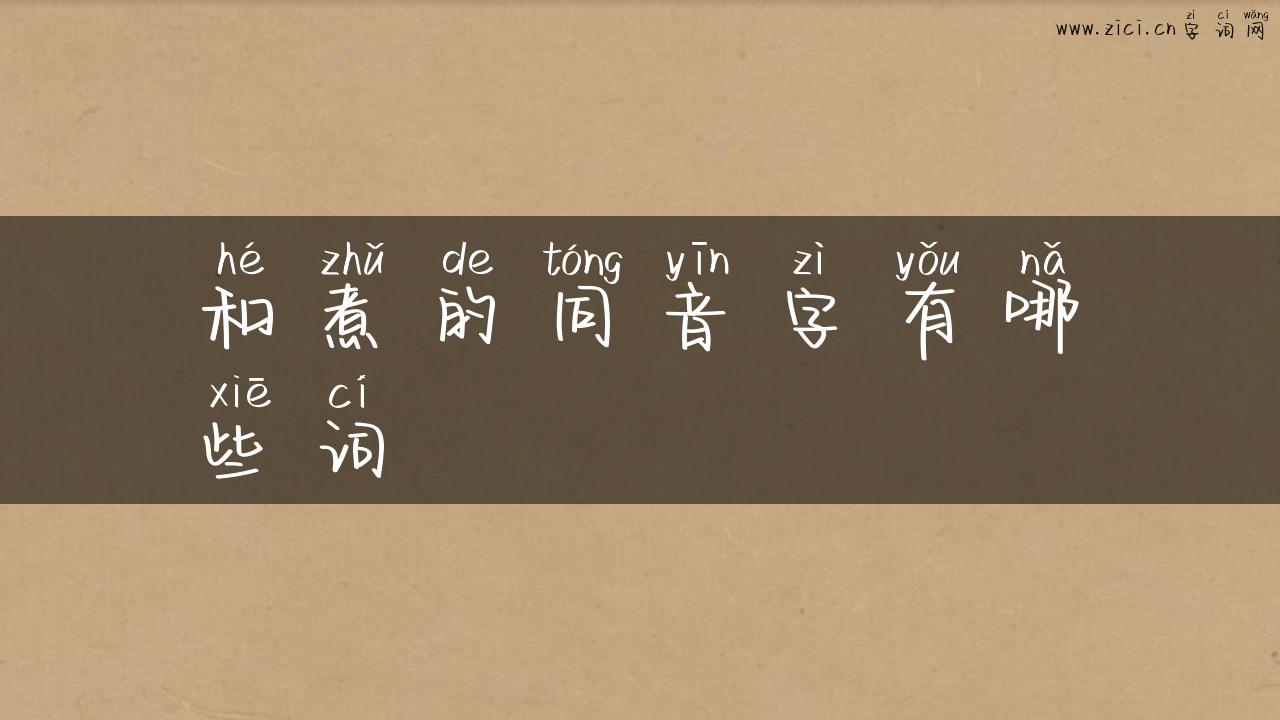 zì cí wǎng
www.zici.cn 字 词 网
hé zhǔ de tóng yīn zì yǒu nǎ
和 煮 的 同 音 字 有 哪
xiē cí
些 词